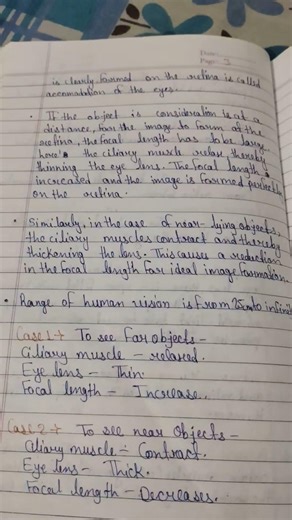 Date:
Page: 3
is clearly formed on the retina is called
accomodation of the eyes.
• If the object is consideration is at a
distance, for the image to form at the
retina, the focal length has to be large,
here the ciliary muscle relax thereby
thinning the eye lens. The focal length is
increased and the image is formed perfectly
on the retina.
• Similarly, in the case of near-lying objects,
the ciliary muscles contract and thereby
thickening the lens. This causes a reduction
in the focal length for ideal image formation.
• Range of human vision is from 25cm to infinite
Case 1 → To see far objects -
Ciliary muscle - relaxed.
Eye lens - Thin.
Focal length - Increase.
Case 2 → To see near objects -
Ciliary muscle - Contract.
Eye lens - Thick.
Focal length - Decreases.